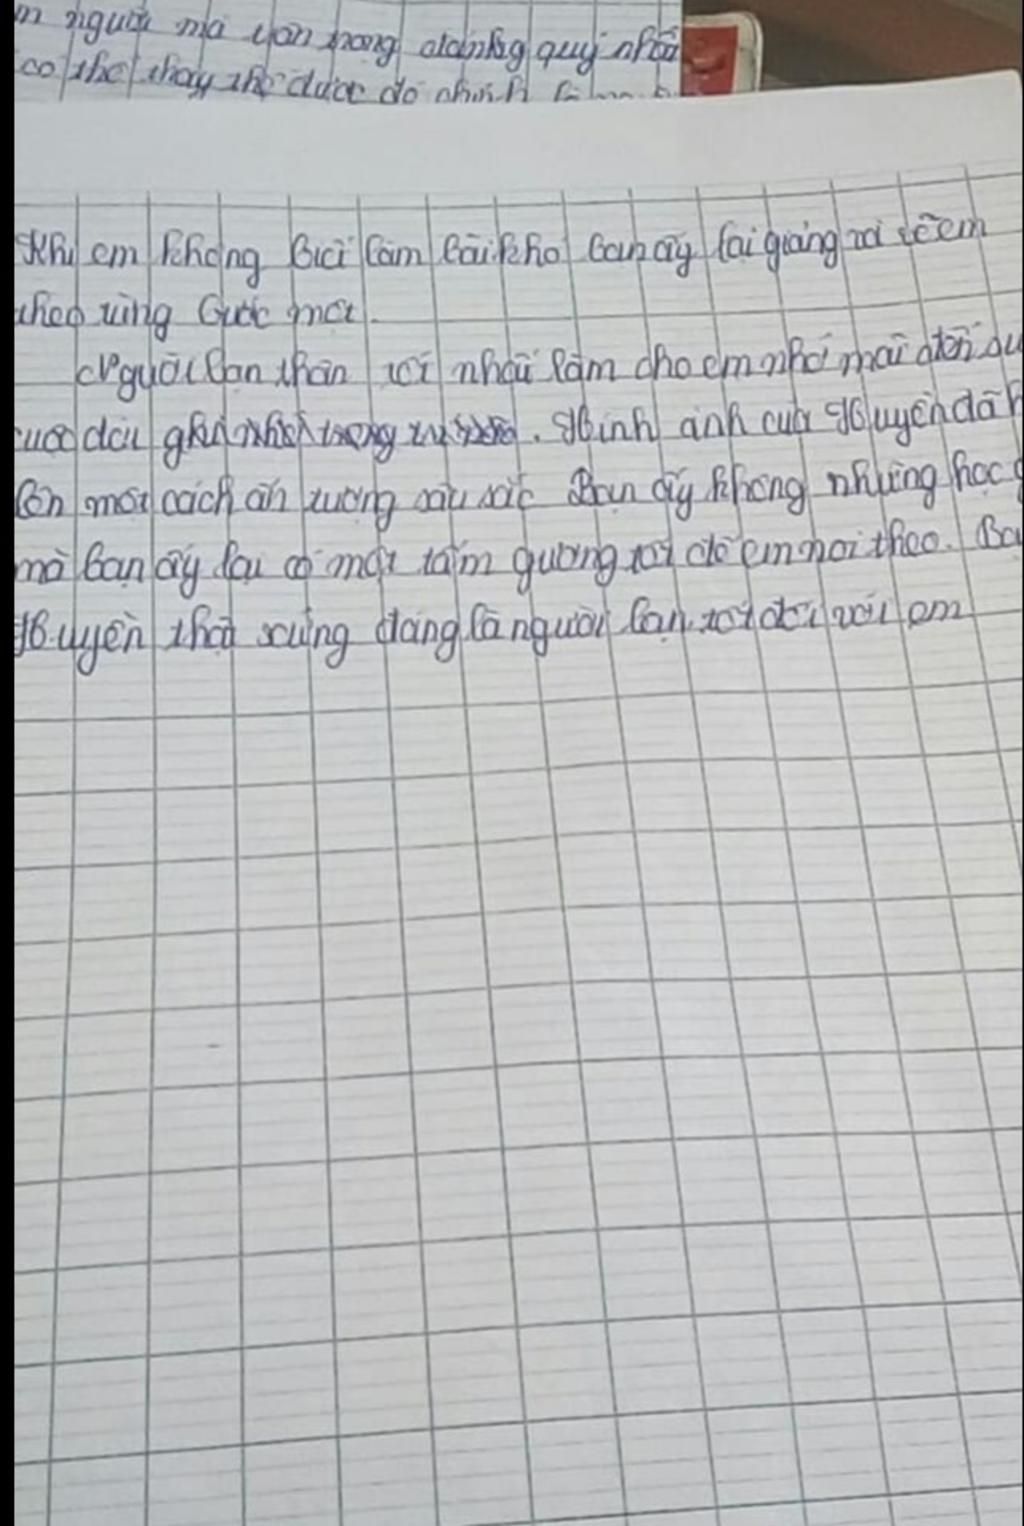 người mà trân trọng đáng quý nhất
có thể thay thế được đó chính là
Khi em không biết làm bài khó bạn ấy lại giảng rải để em
theo từng bước một.
Người bạn thân tốt nhất làm cho em nhớ mãi đến
cuộc đời ghi nhớ trong. Hình ảnh của Huyền đã
lên một cách ấn tượng sâu sắc Bạn ấy không những học
mà bạn ấy lại có một tấm gương tốt để em noi theo. Bạ
Huyền thật xứng đáng là người bạn tốt đối với em